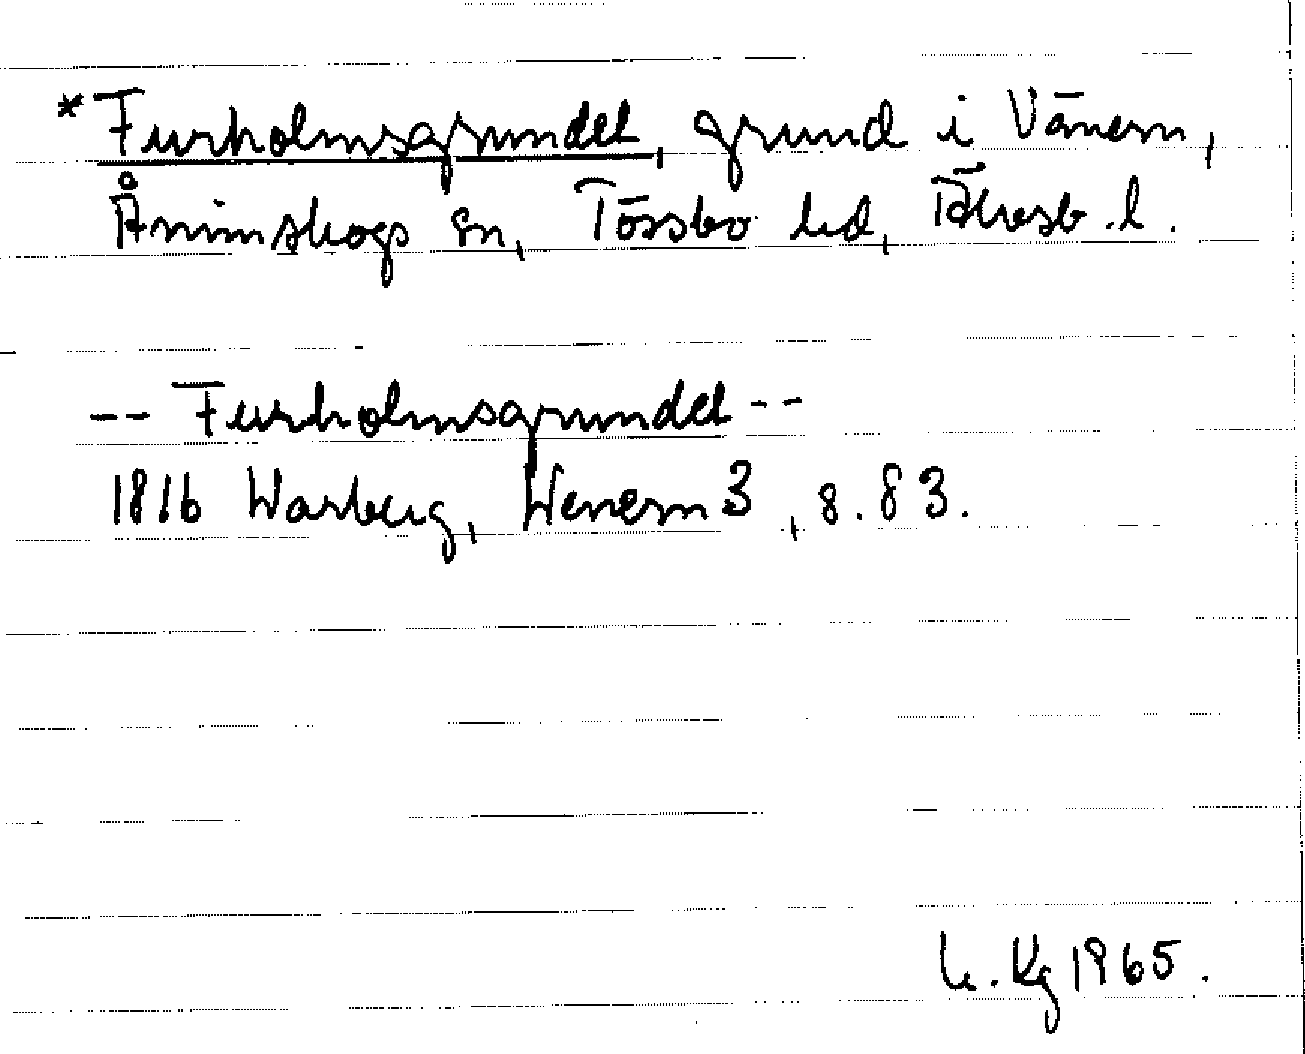 *Furholmsgrundet, grund i Vänern,
Ånimskogs sn, Tössbo hd, Älvsb. l.
-- Furholmsgrundet --
1816 Warberg, Wenern 3, s. 83.
Kg 1965.